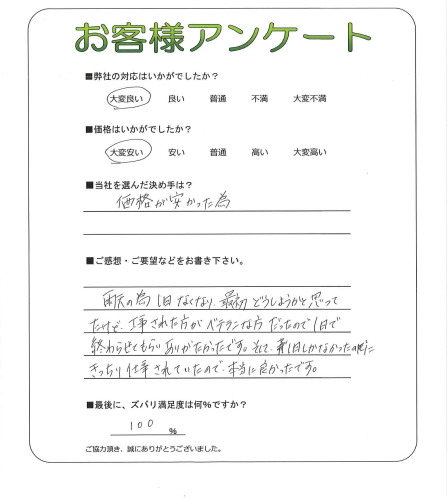 お客様アンケート
■弊社の対応はいかがでしたか？
大変良い 良い 普通 不満 大変不満
■価格はいかがでしたか？
大変安い 安い 普通 高い 大変高い
■当社を選んだ決め手は？
価格が安かった為
■ご感想・ご要望などをお書き下さい。
雨天の為1日なくなり、最初どうしようかと思って
たけど、工事された方がベテランな方だったので1日で
終わらせてもらいありがたかったです。そして、1日しかなかったのに
きっちり仕事されていたので、本当に良かったです。
■最後に、ズバリ満足度は何％ですか？
100 ％
ご協力頂き、誠にありがとうございました。